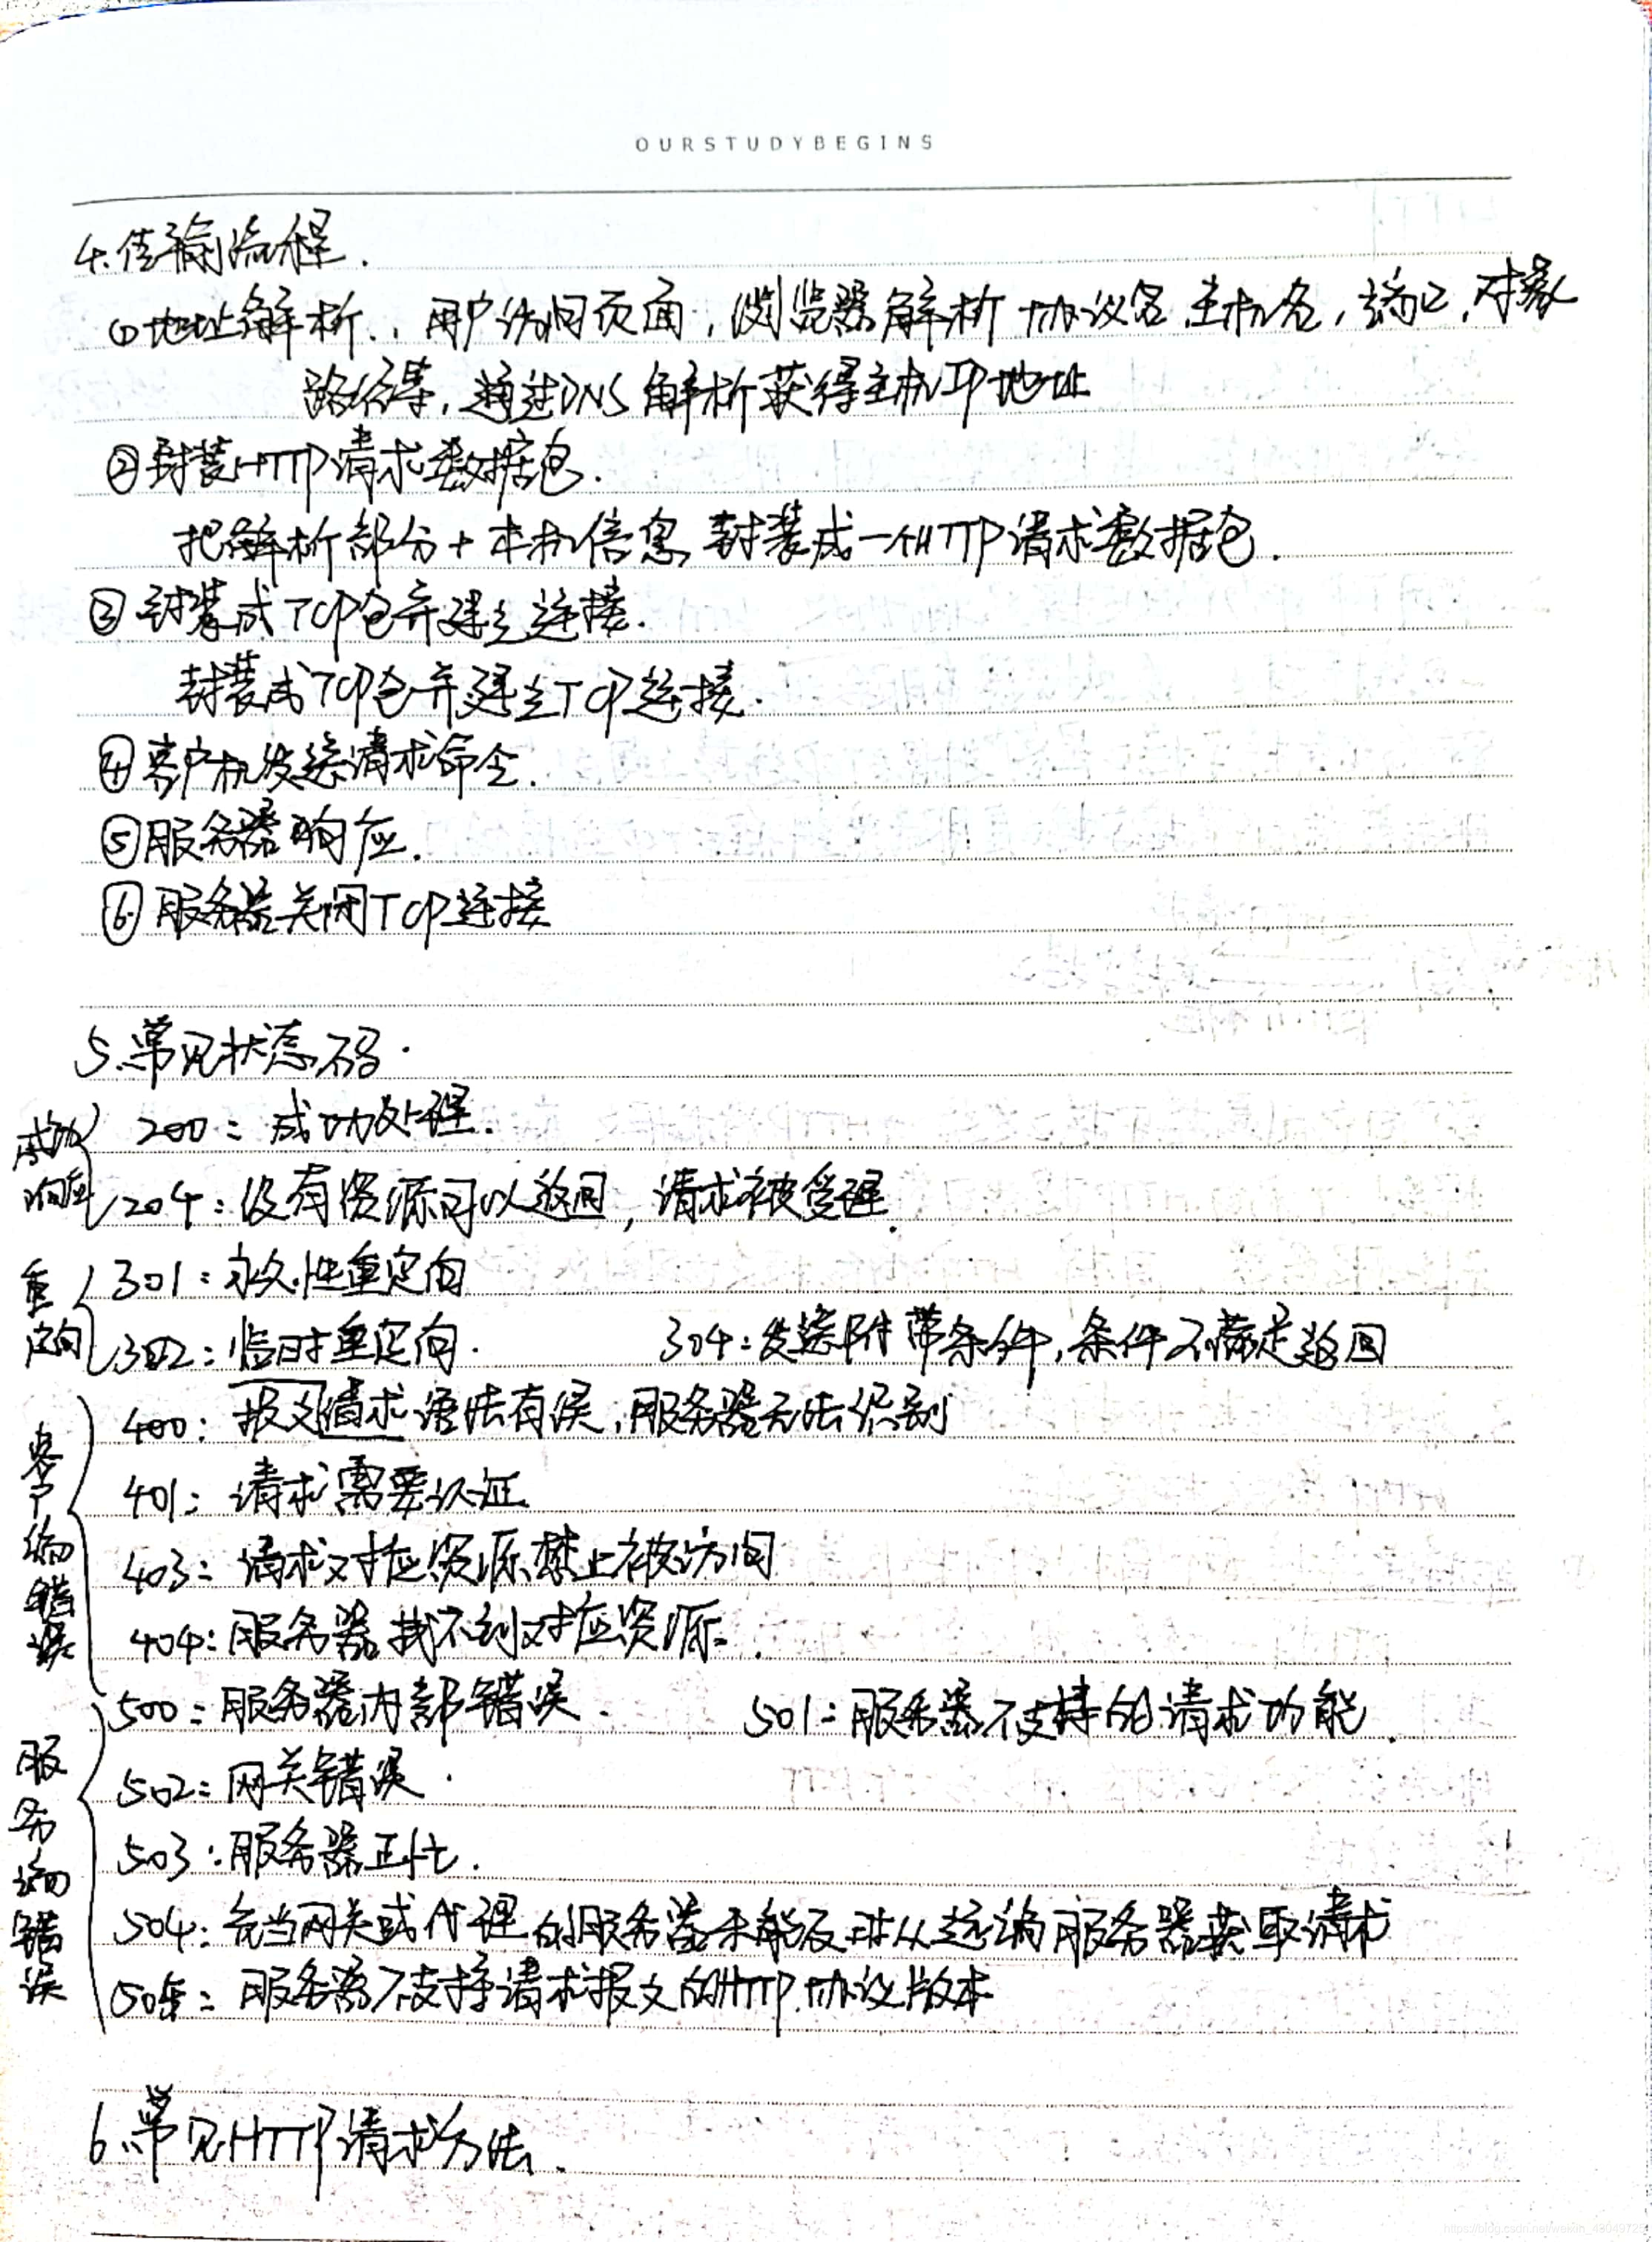 OURSTUDYBEGINS
4.传输流程.
①地址解析.，用户访问页面，浏览器解析协议名.主机名，端口，对象
路径等，通过DNS解析获得主机IP地址
②封装HTTP请求数据包.
把解析部分+本机信息封装成一个HTTP请求数据包.
③封装成TCP包并建立连接.
封装成TCP包并建立TCP连接.
④客户机发送请求命令.
⑤服务器响应.
⑥服务器关闭TCP连接
5.常见状态码.
成功响应
200：成功处理.
204：没有资源可以返回，请求被受理.
重定向
301：永久性重定向
302：临时重定向. 304：发送附带条件，条件不满足返回
客户端错误
400：报文请求语法有误，服务器无法识别
401：请求需要认证
403：请求对应资源禁止被访问
404：服务器找不到对应资源.
服务端错误
500：服务器内部错误. 501：服务器不支持的请求功能.
502：网关错误.
503：服务器正忙.
504：充当网关或代理的服务器未能及时从远端服务器获取请求
505：服务器不支持请求报文的HTTP协议版本
6.常见HTTP请求方法.